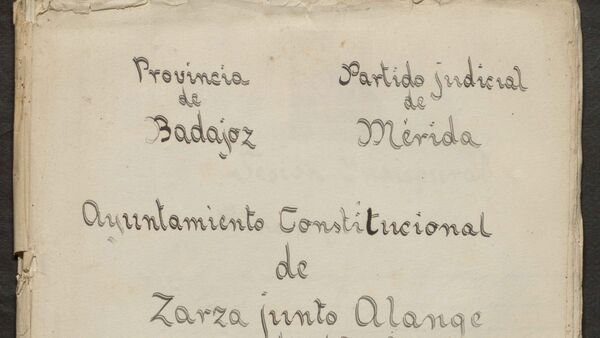 Provincia
de
Badajoz
Partido judicial
de
Mérida
Ayuntamiento Constitucional
de
Zarza junto Alange